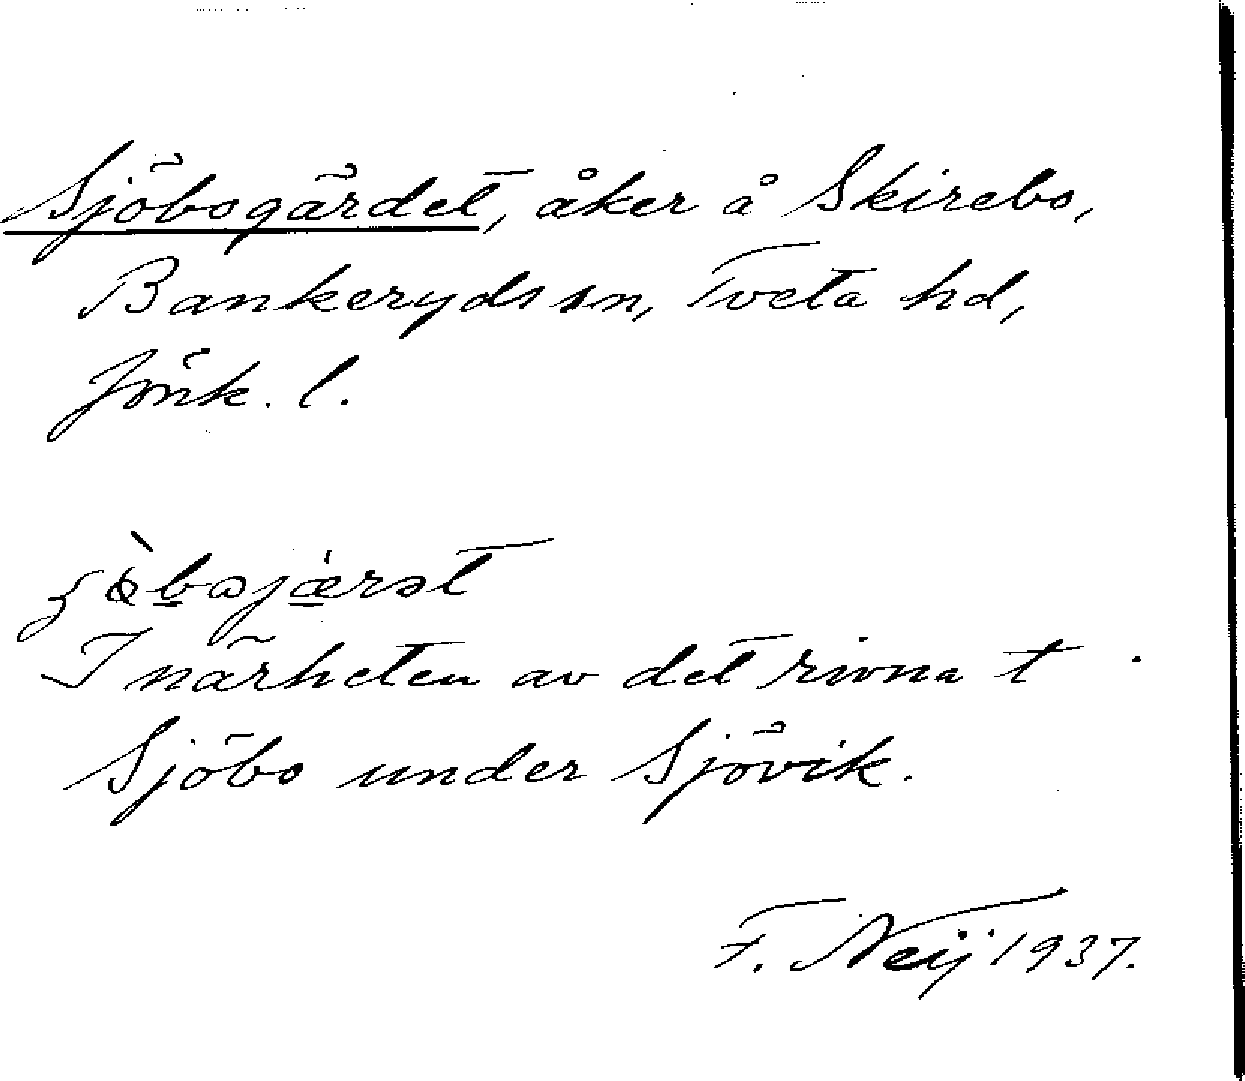 Sjöbogärdet, åker å Skirebo,
Bankeryds sn, Tveta hd,
Jönk. l.
I närheten av det rivna t
Sjöbo under Sjövik.
F. Neij 1937.